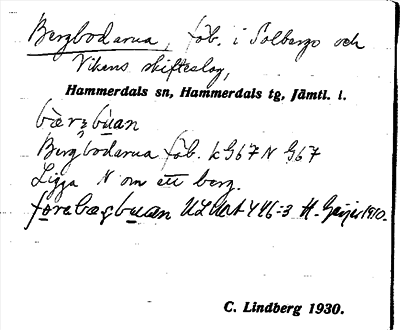 Bergbodarna, fäb. i Solberga och
Vikens skifteslag,
Hammerdals sn, Hammerdals tg, Jämtl. l.
bærgbuan
Bergbodarna fäb. k G67 N G67
Ligga N om ett berg.
H. Geijer 1910.
C. Lindberg 1930.